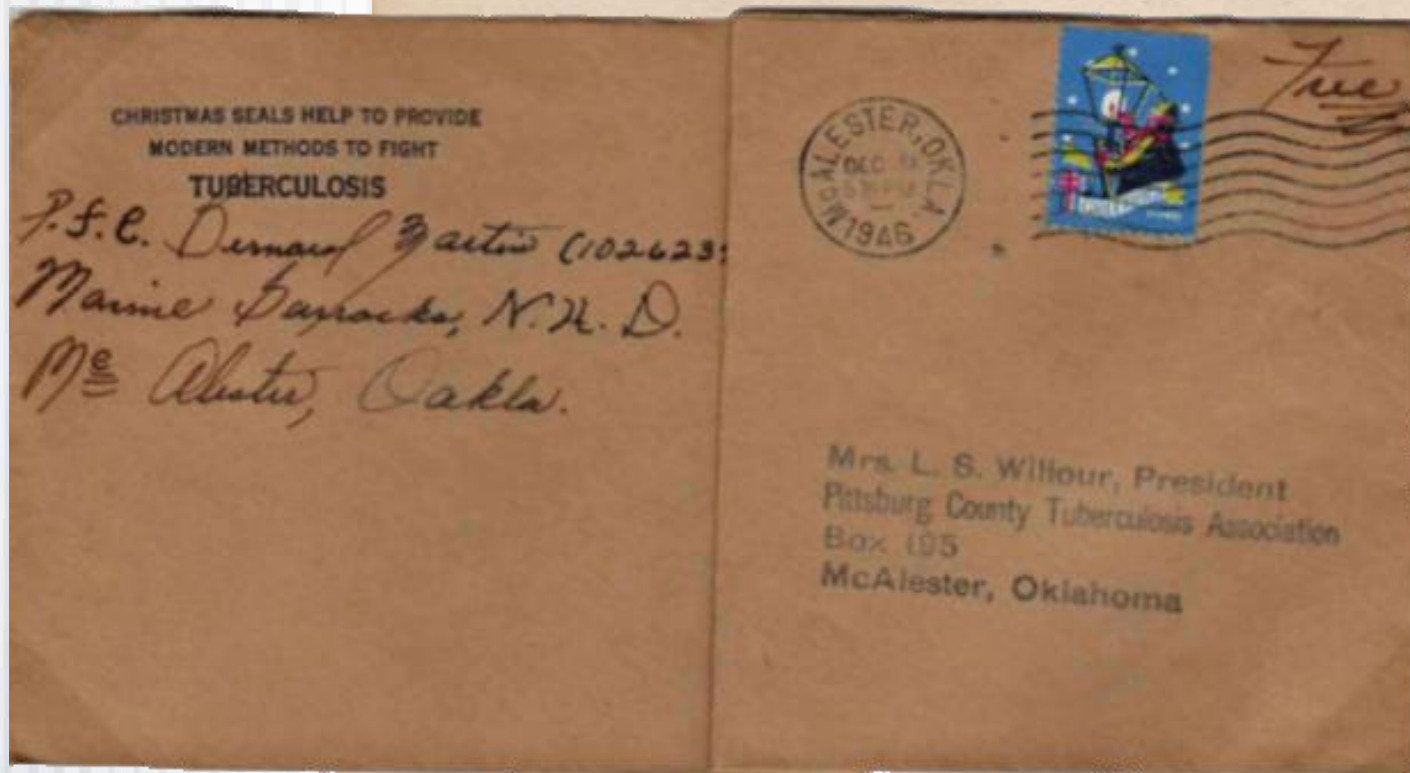 CHRISTMAS SEALS HELP TO PROVIDE
MODERN METHODS TO FIGHT
TUBERCULOSIS
P.F.C. (102623
Marine Barracks, N. D.
Mc Alester, Oakla.
McALESTER, OKLA.
DEC
1946
Free
Mrs. L. S. Willour, President
Pittsburg County Tuberculosis Association
Box 195
McAlester, Oklahoma